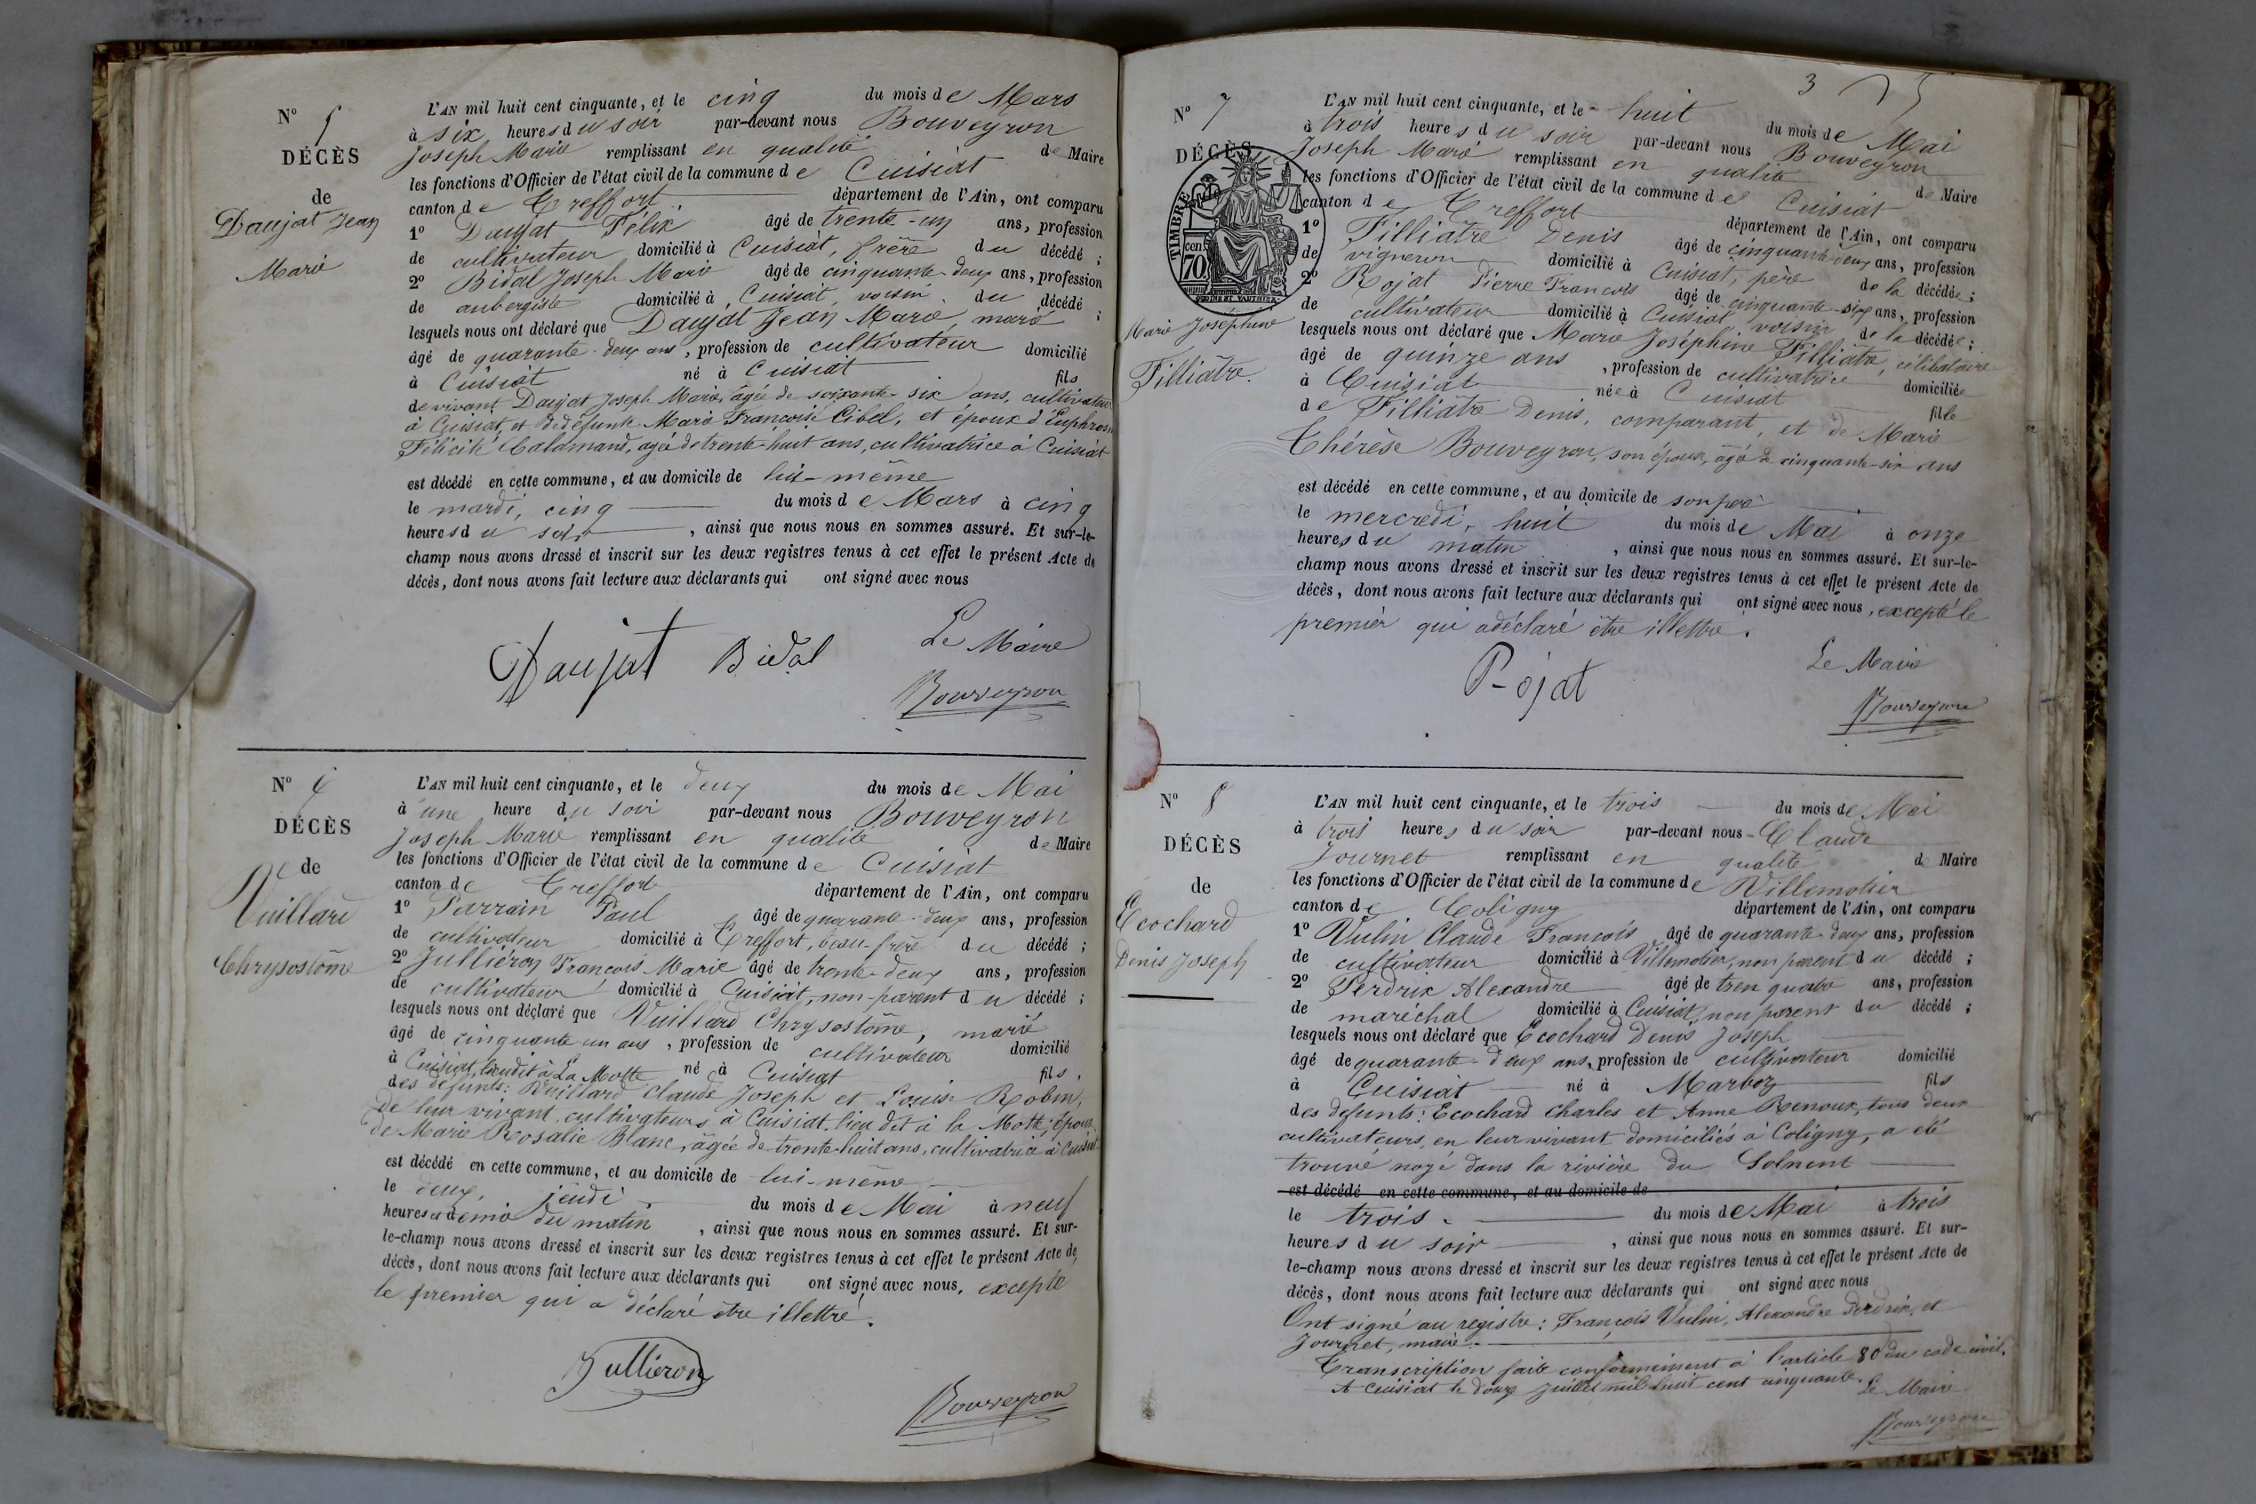 N° 5
DÉCÈS
de
Daujat Jean
Marie
L'AN mil huit cent cinquante, et le cinq du mois de Mars
à six heures du soir par-devant nous Bouveyron
Joseph Marie remplissant en qualité de Maire
les fonctions d'Officier de l'état civil de la commune de Cuisiat
canton de Treffort département de l'Ain, ont comparu
1° Daujat Félix âgé de trente-un ans, profession
de cultivateur domicilié à Cuisiat, frère du décédé ;
2° Bidal Joseph Marie âgé de cinquante-deux ans, profession
de aubergiste domicilié à Cuisiat, voisin du décédé ;
lesquels nous ont déclaré que Daujat Jean Marie, marié
âgé de quarante-deux ans, profession de cultivateur domicilié
à Cuisiat né à Cuisiat fils
de vivant Daujat Joseph Marie, âgé de soixante-six ans, cultivateur
à Cuisiat, et de défunte Marie Françoise Cibel, et époux d'Euphrosin
Félicité Calamand, agée de trente-huit ans, cultivatrice à Cuisiat
est décédé en cette commune, et au domicile de lui-même
le mardi, cinq du mois de Mars à cinq
heures du soir, ainsi que nous nous en sommes assuré. Et sur-le-
champ nous avons dressé et inscrit sur les deux registres tenus à cet effet le présent Acte de
décès, dont nous avons fait lecture aux déclarants qui ont signé avec nous
Le Maire
Daujat Bidal
Bouveyron
N° 6
DÉCÈS
de
Vuillard
Chrysostôme
L'AN mil huit cent cinquante, et le deux du mois de Mai
à une heure du soir par-devant nous Bouveyron
Joseph Marie remplissant en qualité de Maire
les fonctions d'Officier de l'état civil de la commune de Cuisiat
canton de Treffort département de l'Ain, ont comparu
1° Parrain Paul âgé de quarante-deux ans, profession
de cultivateur domicilié à Treffort, beau-frère du décédé ;
2° Jullieron François Marie âgé de trente-deux ans, profession
de cultivateur domicilié à Cuisiat, non-parent du décédé ;
lesquels nous ont déclaré que Vuillard Chrysostôme, marié
âgé de cinquante un ans, profession de cultivateur domicilié
à Cuisiat, lieudit à La Motte né à Cuisiat fils,
des défunts : Vuillard Claude Joseph et Louise Robin,
de leur vivant cultivateurs à Cuisiat, lieu dit à la Motte, époux
de Marie Rosalie Blanc, âgée de trente-huit ans, cultivatrice à Cuisiat
est décédé en cette commune, et au domicile de lui-même
le deux, jeudi du mois de Mai à neuf
heures et demie du matin, ainsi que nous nous en sommes assuré. Et sur-
le-champ nous avons dressé et inscrit sur les deux registres tenus à cet effet le présent Acte de
décès, dont nous avons fait lecture aux déclarants qui ont signé avec nous, excepté
le premier qui a déclaré être illettré.
Jullieron
Bouveyron
3
N° 7
DÉCÈS
TIMBRE
70 cen
Marie Joséphine
Filliâtre.
L'AN mil huit cent cinquante, et le huit du mois de Mai
à trois heures du soir par-devant nous Bouveyron
Joseph Marie remplissant en qualité de Maire
les fonctions d'Officier de l'état civil de la commune de Cuisiat
canton de Treffort département de l'Ain, ont comparu
1° Filliatre Denis âgé de cinquante-deux ans, profession
de vigneron domicilié à Cuisiat, père de la décédée ;
2° Rojat Pierre François âgé de cinquante-six ans, profession
de cultivateur domicilié à Cuisiat, voisin de la décédée ;
lesquels nous ont déclaré que Marie Joséphine Filliâtre, célibataire
âgé de quinze ans, profession de cultivatrice domiciliée
à Cuisiat née à Cuisiat fille
de Filliâtre Denis, comparant, et de Marie
Thérèse Bouveyron, son épouse, agée de cinquante-six ans
est décédé en cette commune, et au domicile de son père
le mercredi, huit du mois de Mai à onze
heures du matin, ainsi que nous nous en sommes assuré. Et sur-le-
champ nous avons dressé et inscrit sur les deux registres tenus à cet effet le présent Acte de
décès, dont nous avons fait lecture aux déclarants qui ont signé avec nous, excepté le
premier qui a déclaré être illettré.
Le Maire
Rojat
Bouveyron
N° 8
DÉCÈS
de
Ecochard
Denis Joseph
L'AN mil huit cent cinquante, et le trois du mois de Mai
à trois heures du soir par-devant nous Claude
Journet remplissant en qualité de Maire
les fonctions d'Officier de l'état civil de la commune de Villemotier
canton de Coligny département de l'Ain, ont comparu
1° Vulin Claude François âgé de quarante-deux ans, profession
de cultivateur domicilié à Villemotier, non parent du décédé ;
2° Perdrix Alexandre âgé de tren quatre ans, profession
de maréchal domicilié à Cuisiat, non parent du décédé ;
lesquels nous ont déclaré que Ecochard Denis Joseph
âgé de quarante-deux ans, profession de cultivateur domicilié
à Cuisiat né à Marboz fils
des défunts : Ecochard Charles et Anne Renoux, tous deux
cultivateurs, en leur vivant domiciliés à Coligny, a été
trouvé noyé dans la rivière du Solnent
est décédé en cette commune, et au domicile de
le trois. du mois de Mai à trois
heures du soir, ainsi que nous nous en sommes assuré. Et sur-
le-champ nous avons dressé et inscrit sur les deux registres tenus à cet effet le présent Acte de
décès, dont nous avons fait lecture aux déclarants qui ont signé avec nous
Ont signé au registre : François Vulin, Alexandre Perdrix, et
Journet, maire.
Transcription faite conformément à l'article 80 du code civil.
A Cuisiat le douze juillet mil huit cent cinquante. Le Maire
Bouveyron